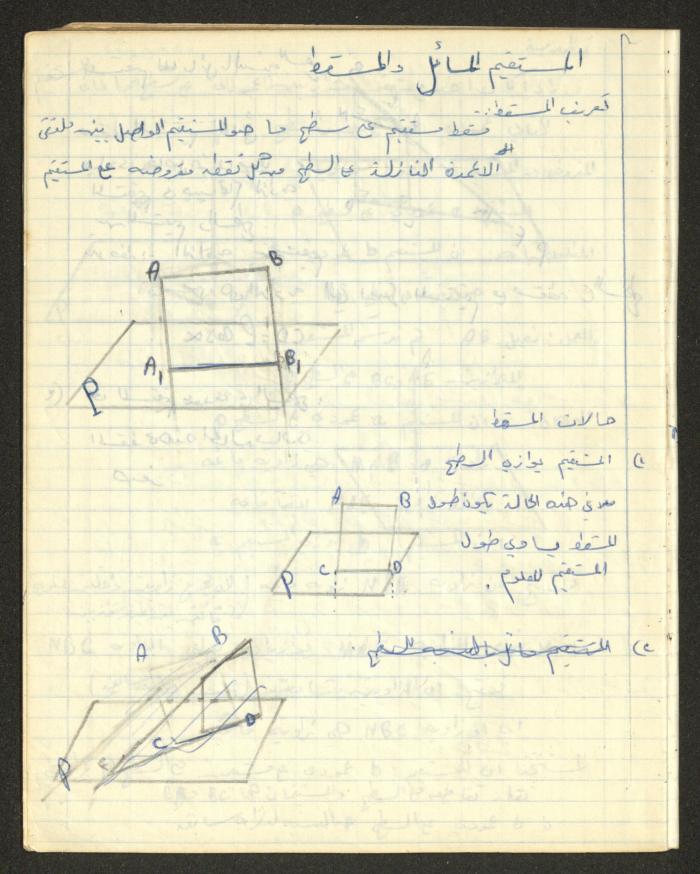 المستقيم المائل والمسقط
تعريف المسقط:
مسقط مستقيم على سطح ما هو المستقيم الواصل بين ملتقى
الاعمدة النازلة على السطح من كل نقطة مفروضة على المستقيم
A B
A1 B1
P
حالات المسقط
١) المستقيم يوازي السطح
وفي هذه الحالة يكون طول
المسقط يساوي طول
المستقيم المعلوم.
A B
C D
P
٢) المستقيم مائل بالنسبة للسطح.
A B
C D
P